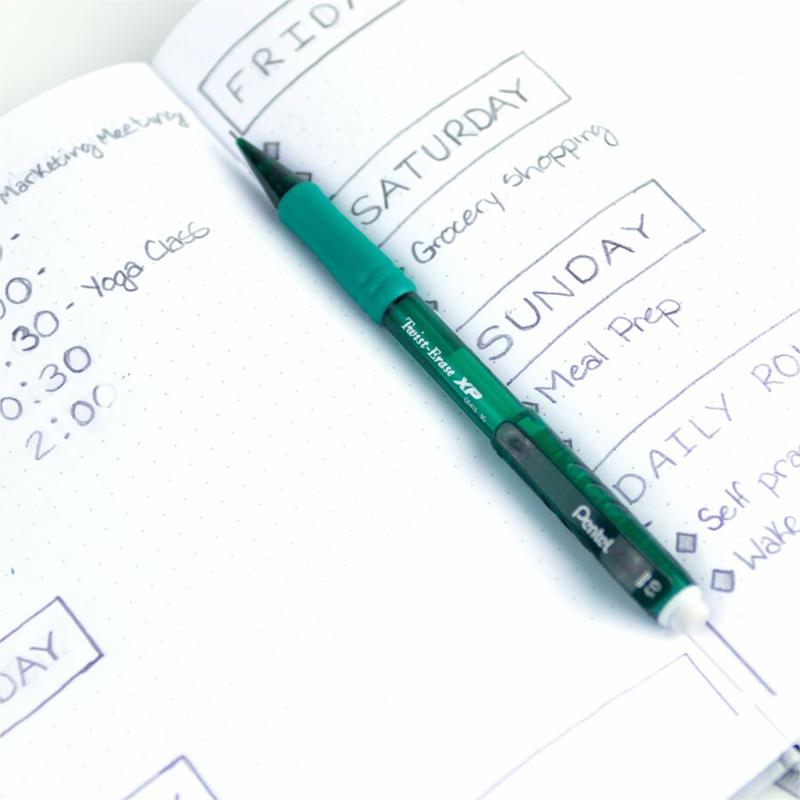 Marketing Meeting
:30 - Yoga Class
0:30
2:00
DAY
FRIDA
SATURDAY
Grocery shopping
SUNDAY
Meal Prep
DAILY RO
Self pra
Wake
Twist-Erase XP
Pentel